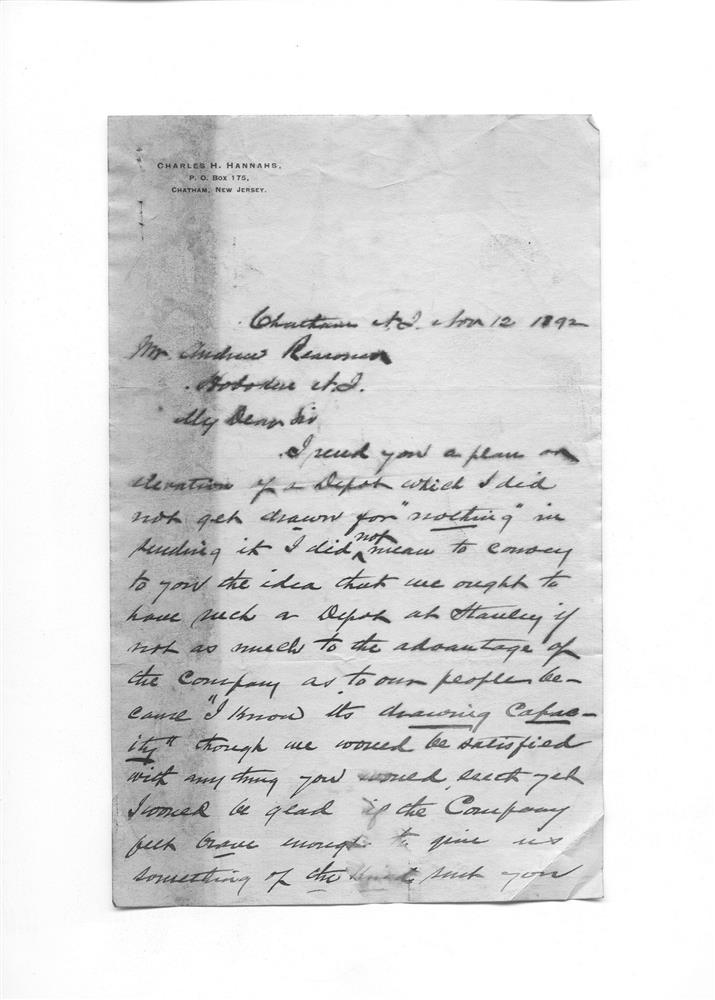 CHARLES H. HANNAHS,
P. O. BOX 175,
CHATHAM, NEW JERSEY.
Chatham N.J. Nov 12 1892
Mr. Andrew Reasoner
Hoboken N.J.
My Dear Sir
I send you a plan or
elevation of a Depot which I did
not get drawn for "nothing" in
sending it I did not mean to convey
to you the idea that we ought to
have such a Depot at Stanley if
not as much to the advantage of
the Company as to our people be-
cause "I know its drawing Capac-
ity" though we would be satisfied
with any thing you would yet
I would be glad if the Company
felt brave enough to give us
something of the kind you